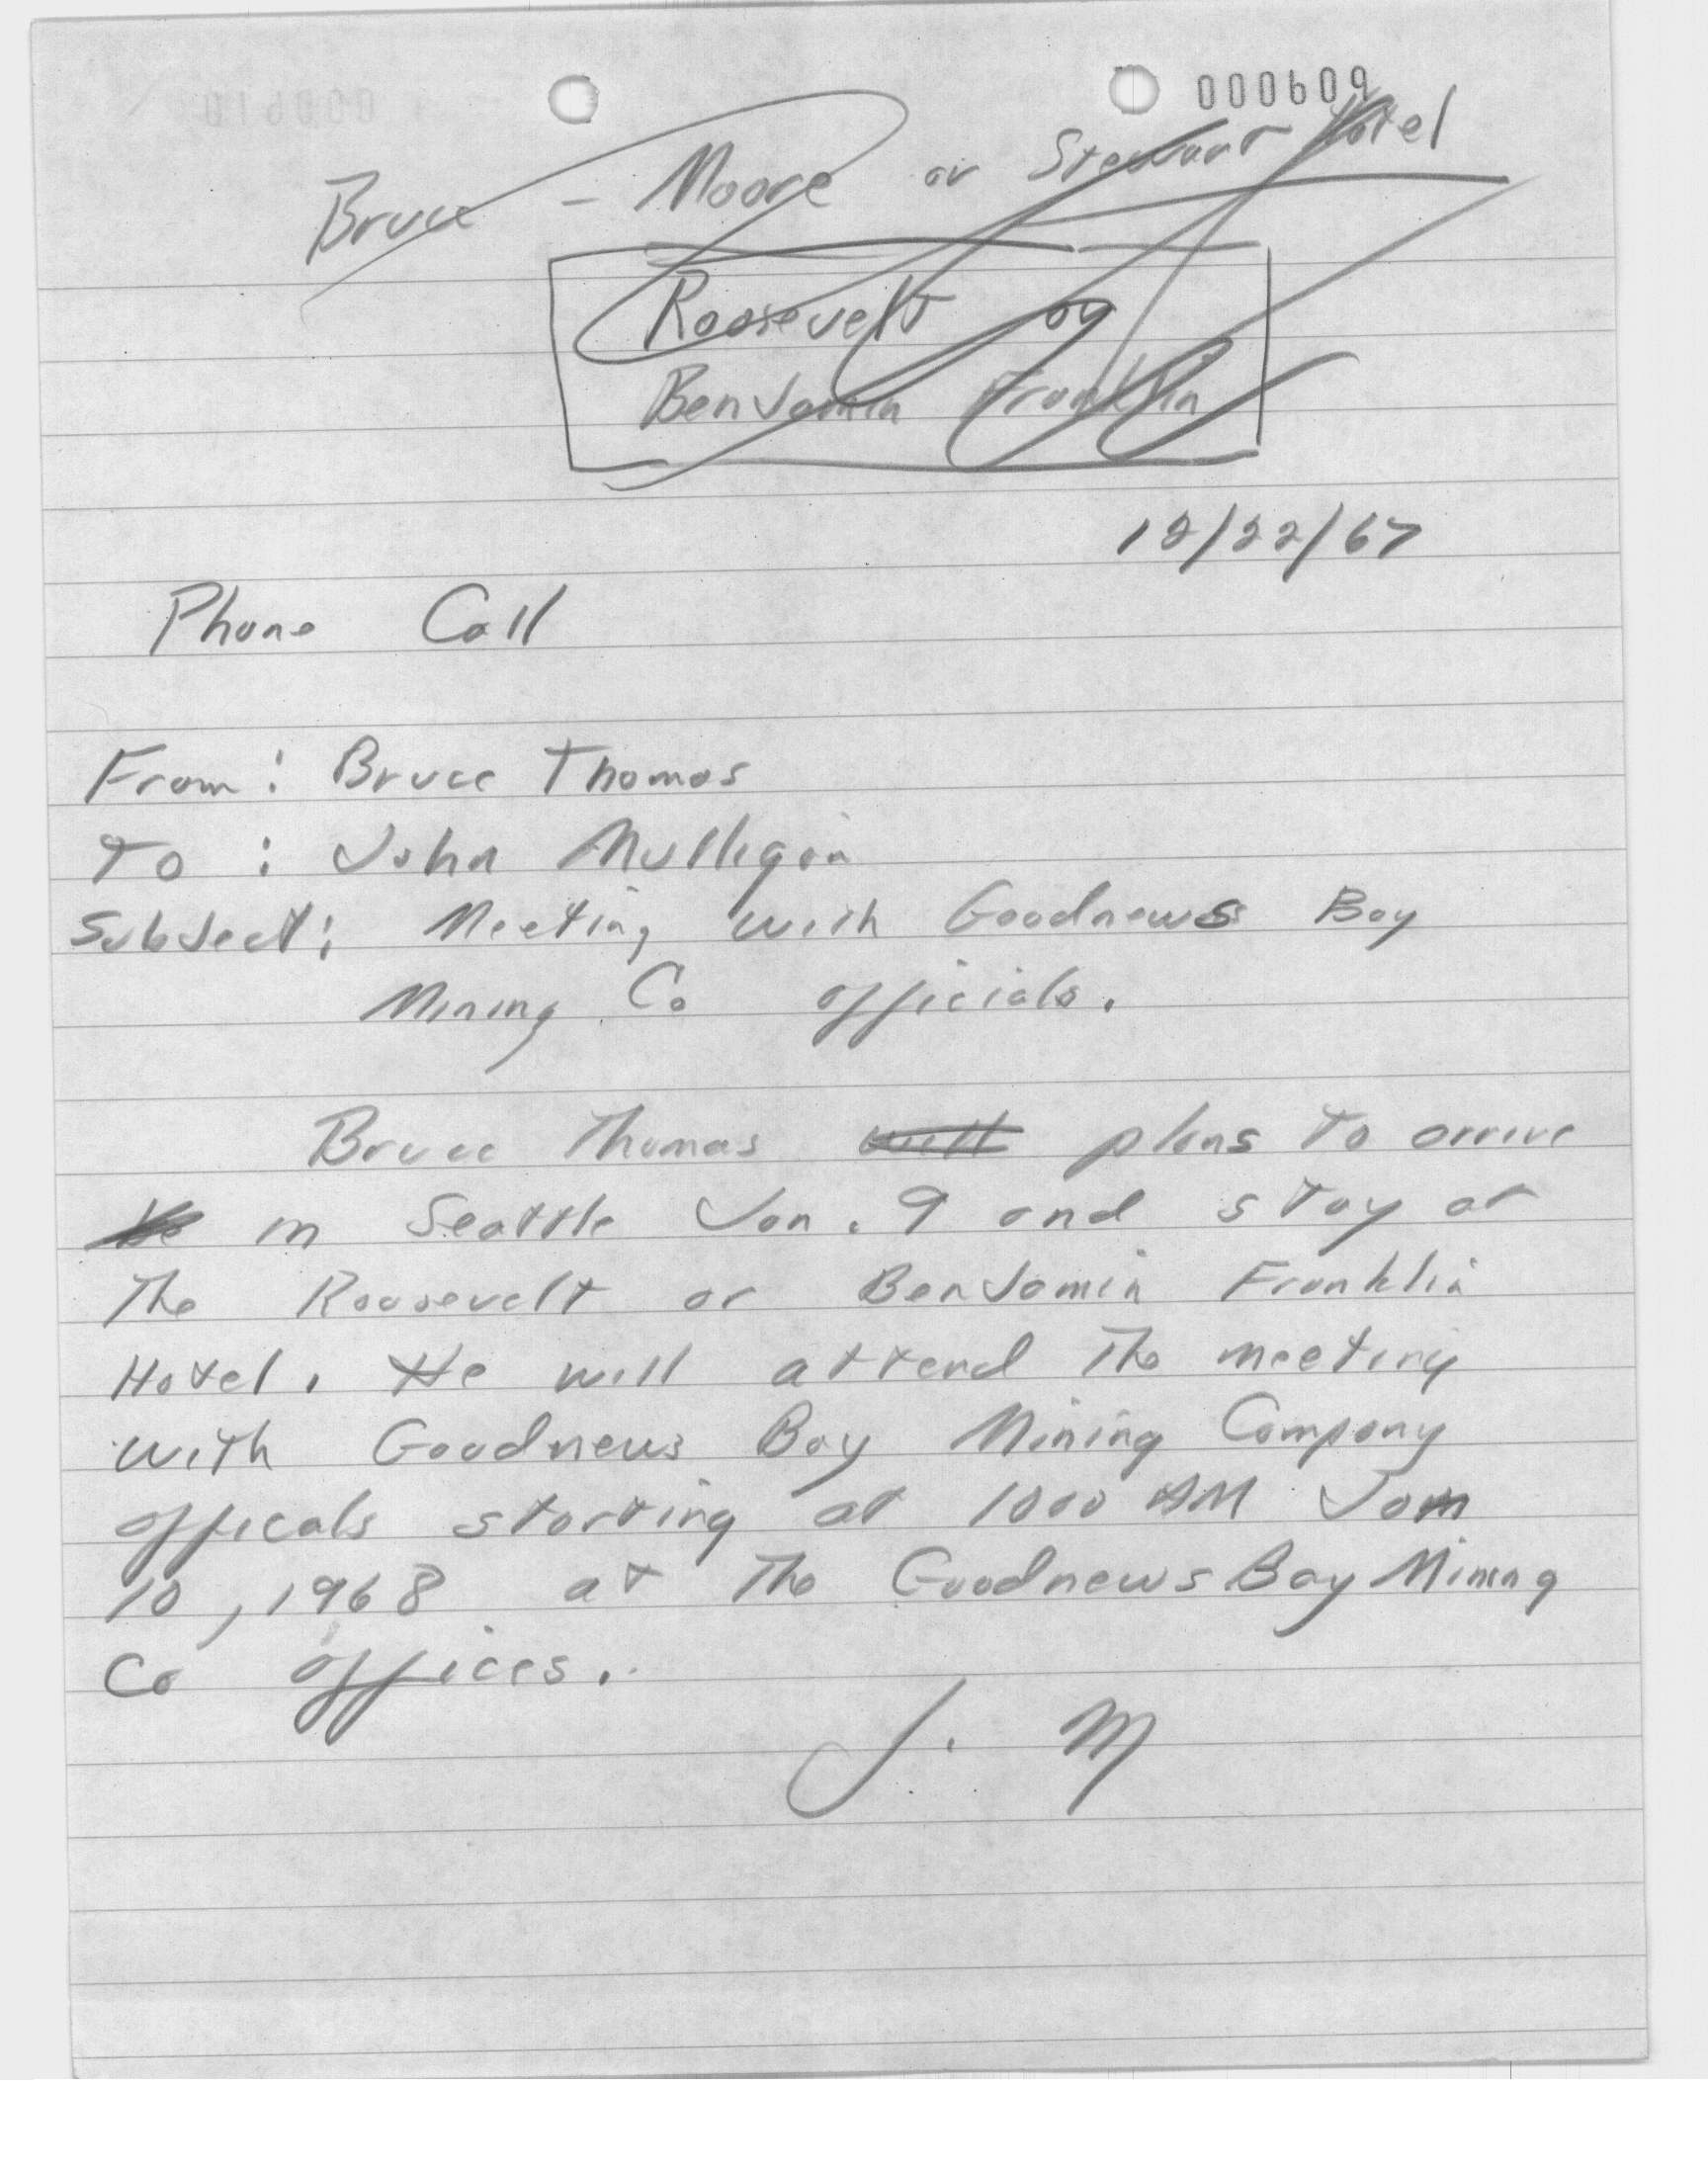 000609
Bruce - Moore or Stewart Hotel
Roosevelt or
Benjamin Franklin
12/22/67
Phone Call
From: Bruce Thomas
To: John Mulligan
Subject: Meeting with Goodnews Bay
Mining Co officials.
Bruce Thomas will plans to arrive
be in Seattle Jan. 9 and stay at
The Roosevelt or Benjamin Franklin
Hotel. He will attend The meeting
with Goodnews Bay Mining Company
officals starting at 1000 AM Jan
10, 1968 at The Goodnews Bay Mining
Co offices.
J. M